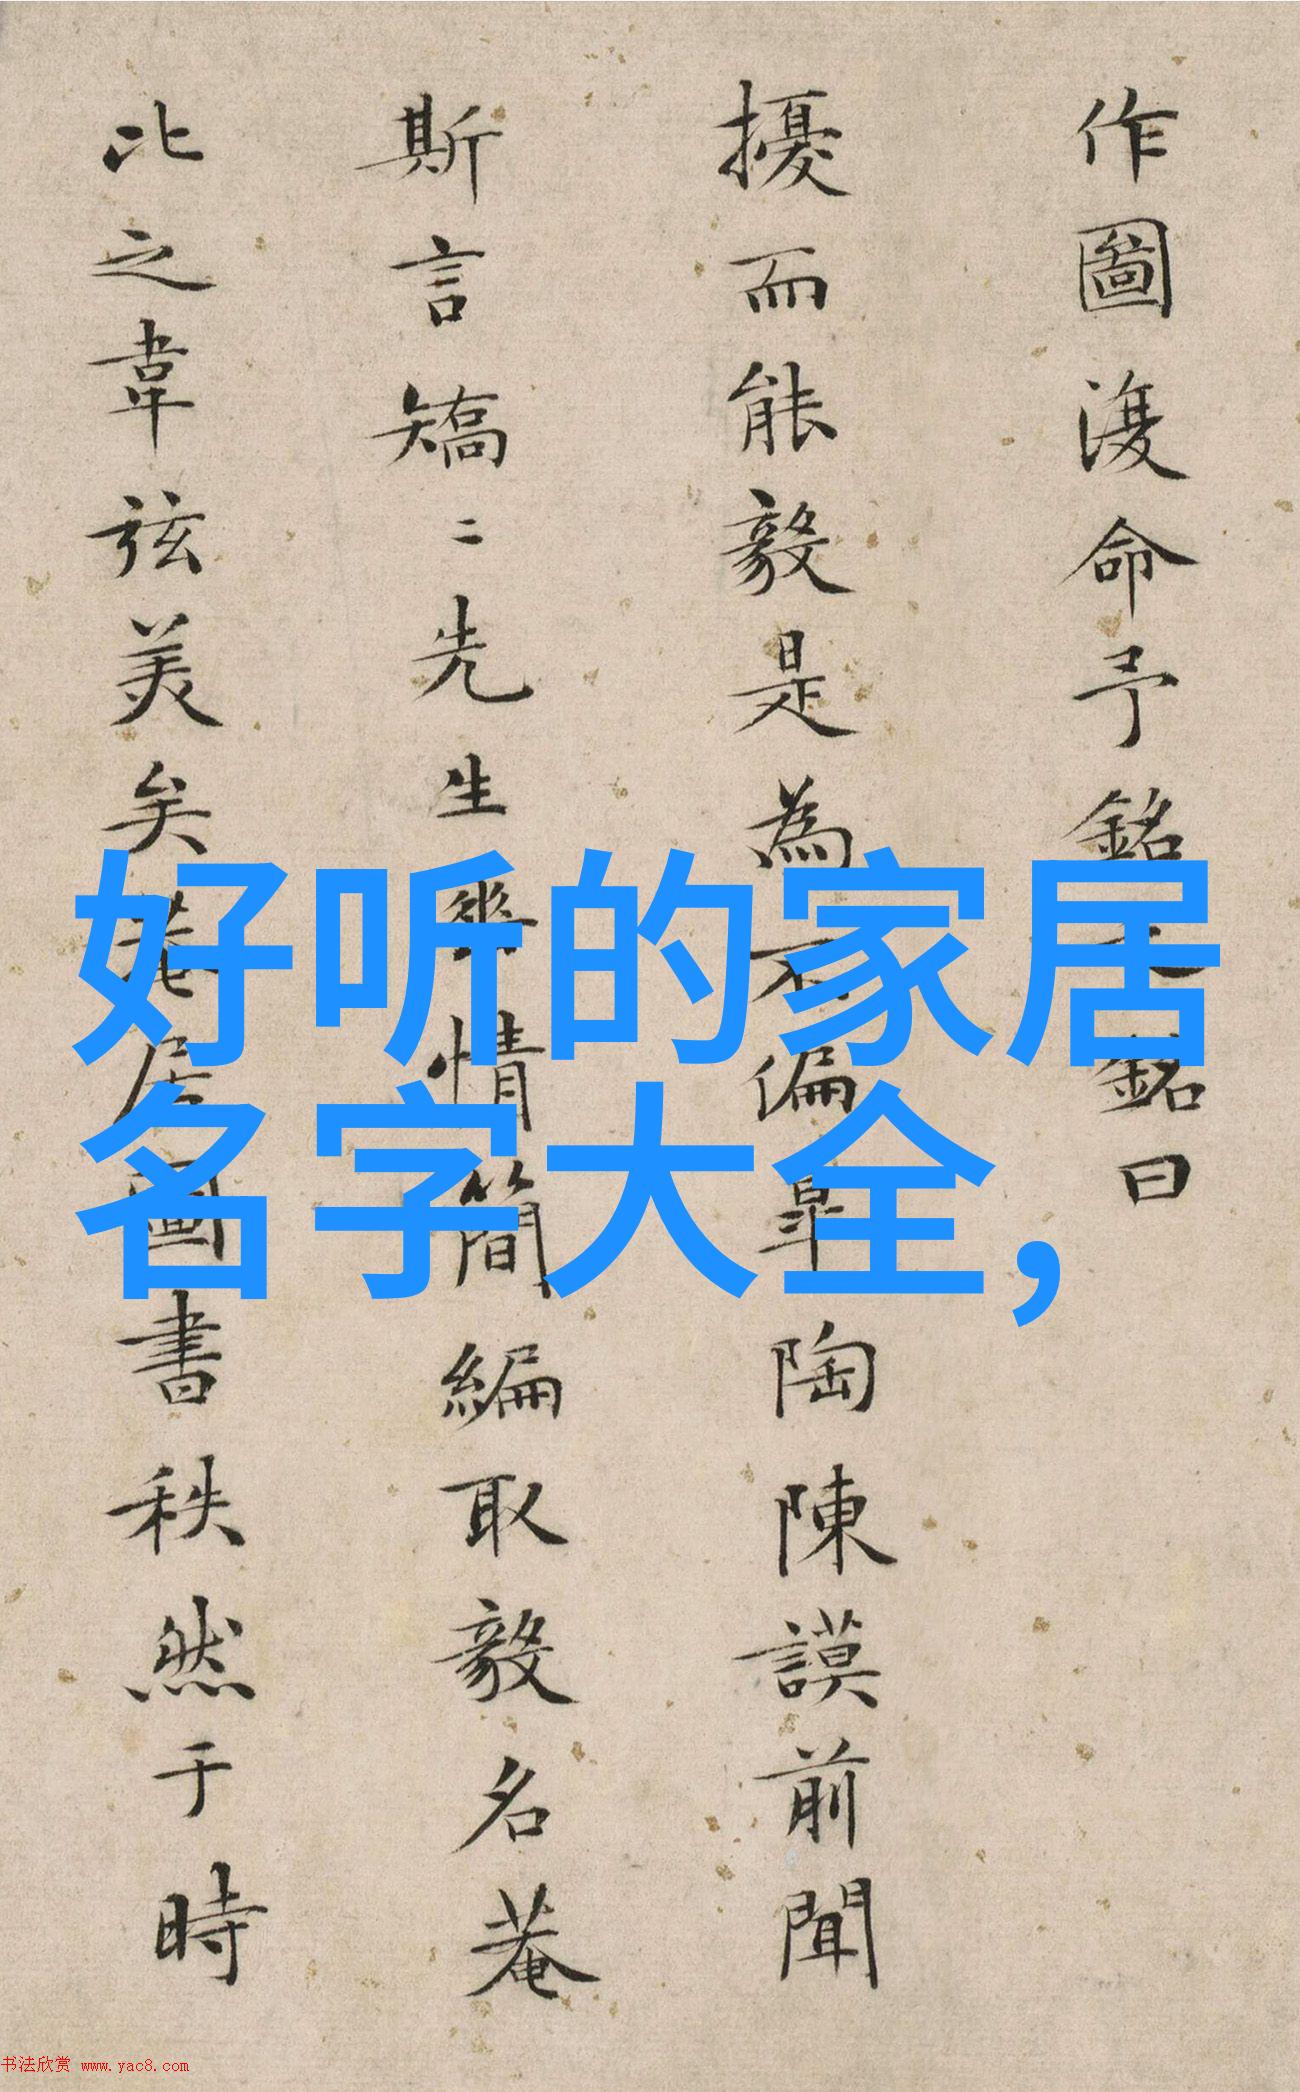 作圖復命予銘之銘曰
擾而能毅是為不偏皐陶陳謨前聞
斯言矯二先生華情簡編取毅名菴
比之韋弦美矣菴居圖書秩然于時
好听的家居
名字大全,
书法欣赏 www.yac8.com